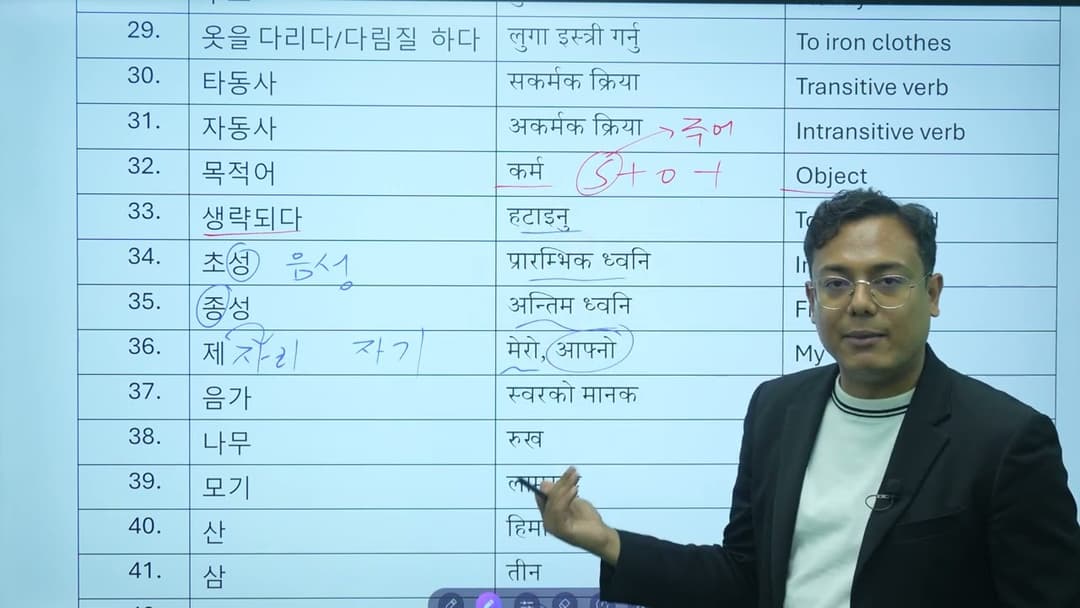 29. 옷을 다리다/다림질 하다 लुगा इस्त्री गर्नु To iron clothes
30. 타동사 सकर्मक क्रिया Transitive verb
31. 자동사 अकर्मक क्रिया 주어 Intransitive verb
32. 목적어 कर्म S + O + Object
33. 생략되다 हटाइनु
34. 초성 음성 प्रारम्भिक ध्वनि
35. 종성 अन्तिम ध्वनि
36. 제 자리 자기 मेरो, आफ्नो My
37. 음가 स्वरको मानक
38. 나무 रुख
39. 모기
40. 산
41. 삼 तीन